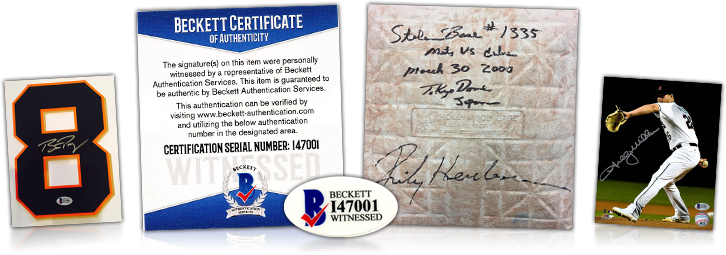 8
BECKETT CERTIFICATE
OF AUTHENTICITY
The signature(s) on this item were personally
witnessed by a representative of Beckett
Authentication Services. This item is guaranteed
to be authentic by Beckett Authentication Services.
This authentication can be verified by
visiting www.beckett-authentication.com
and utilizing the below authentication
number in the designated area.
CERTIFICATION SERIAL NUMBER: I47001
WITNESSED
BECKETT
B
B
BECKETT
I47001
WITNESSED
Stolen Base #1335
Mets VS Cubs
March 30 2000
Tokyo Dome
Japan
Rickey Henderson